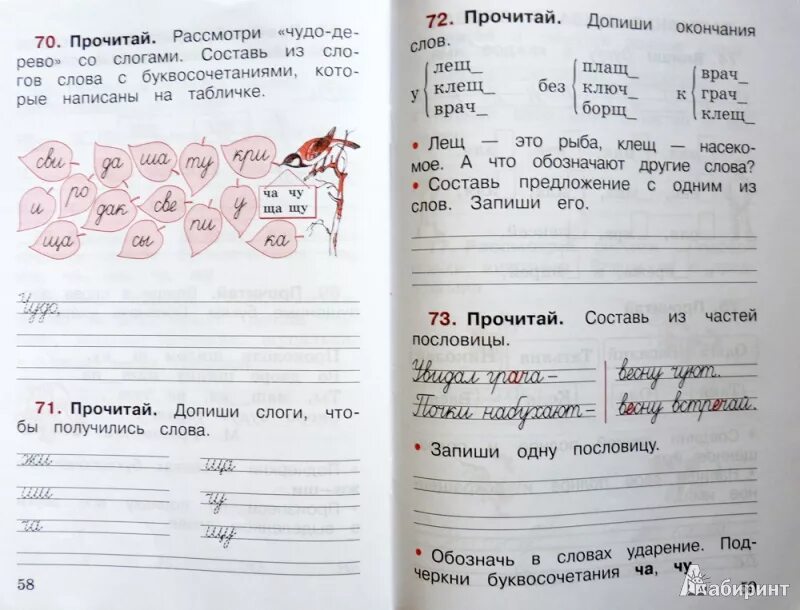 70. Прочитай. Рассмотри «чудо-де-
рево» со слогами. Составь из сло-
гов слова с буквосочетаниями, кото-
рые написаны на табличке.
сви да ша ту кри
и ро дак све пи у
ща сы ка
ча чу
ща щу
Чудо,
71. Прочитай. Допиши слоги, что-
бы получились слова.
жи ща
ши чу
ча щу
58
72. Прочитай. Допиши окончания
слов.
лещ_ плащ_ врач_
у клещ_ без ключ_ к грач_
врач_ борщ_ клещ_
• Лещ — это рыба, клещ — насеко-
мое. А что обозначают другие слова?
• Составь предложение с одним из
слов. Запиши его.
73. Прочитай. Составь из частей
пословицы.
Увидал грача – весну чуют.
Почки набухают – весну встречай.
• Запиши одну пословицу.
• Обозначь в словах ударение. Под-
черкни буквосочетания ча, чу.
59
Лабиринт